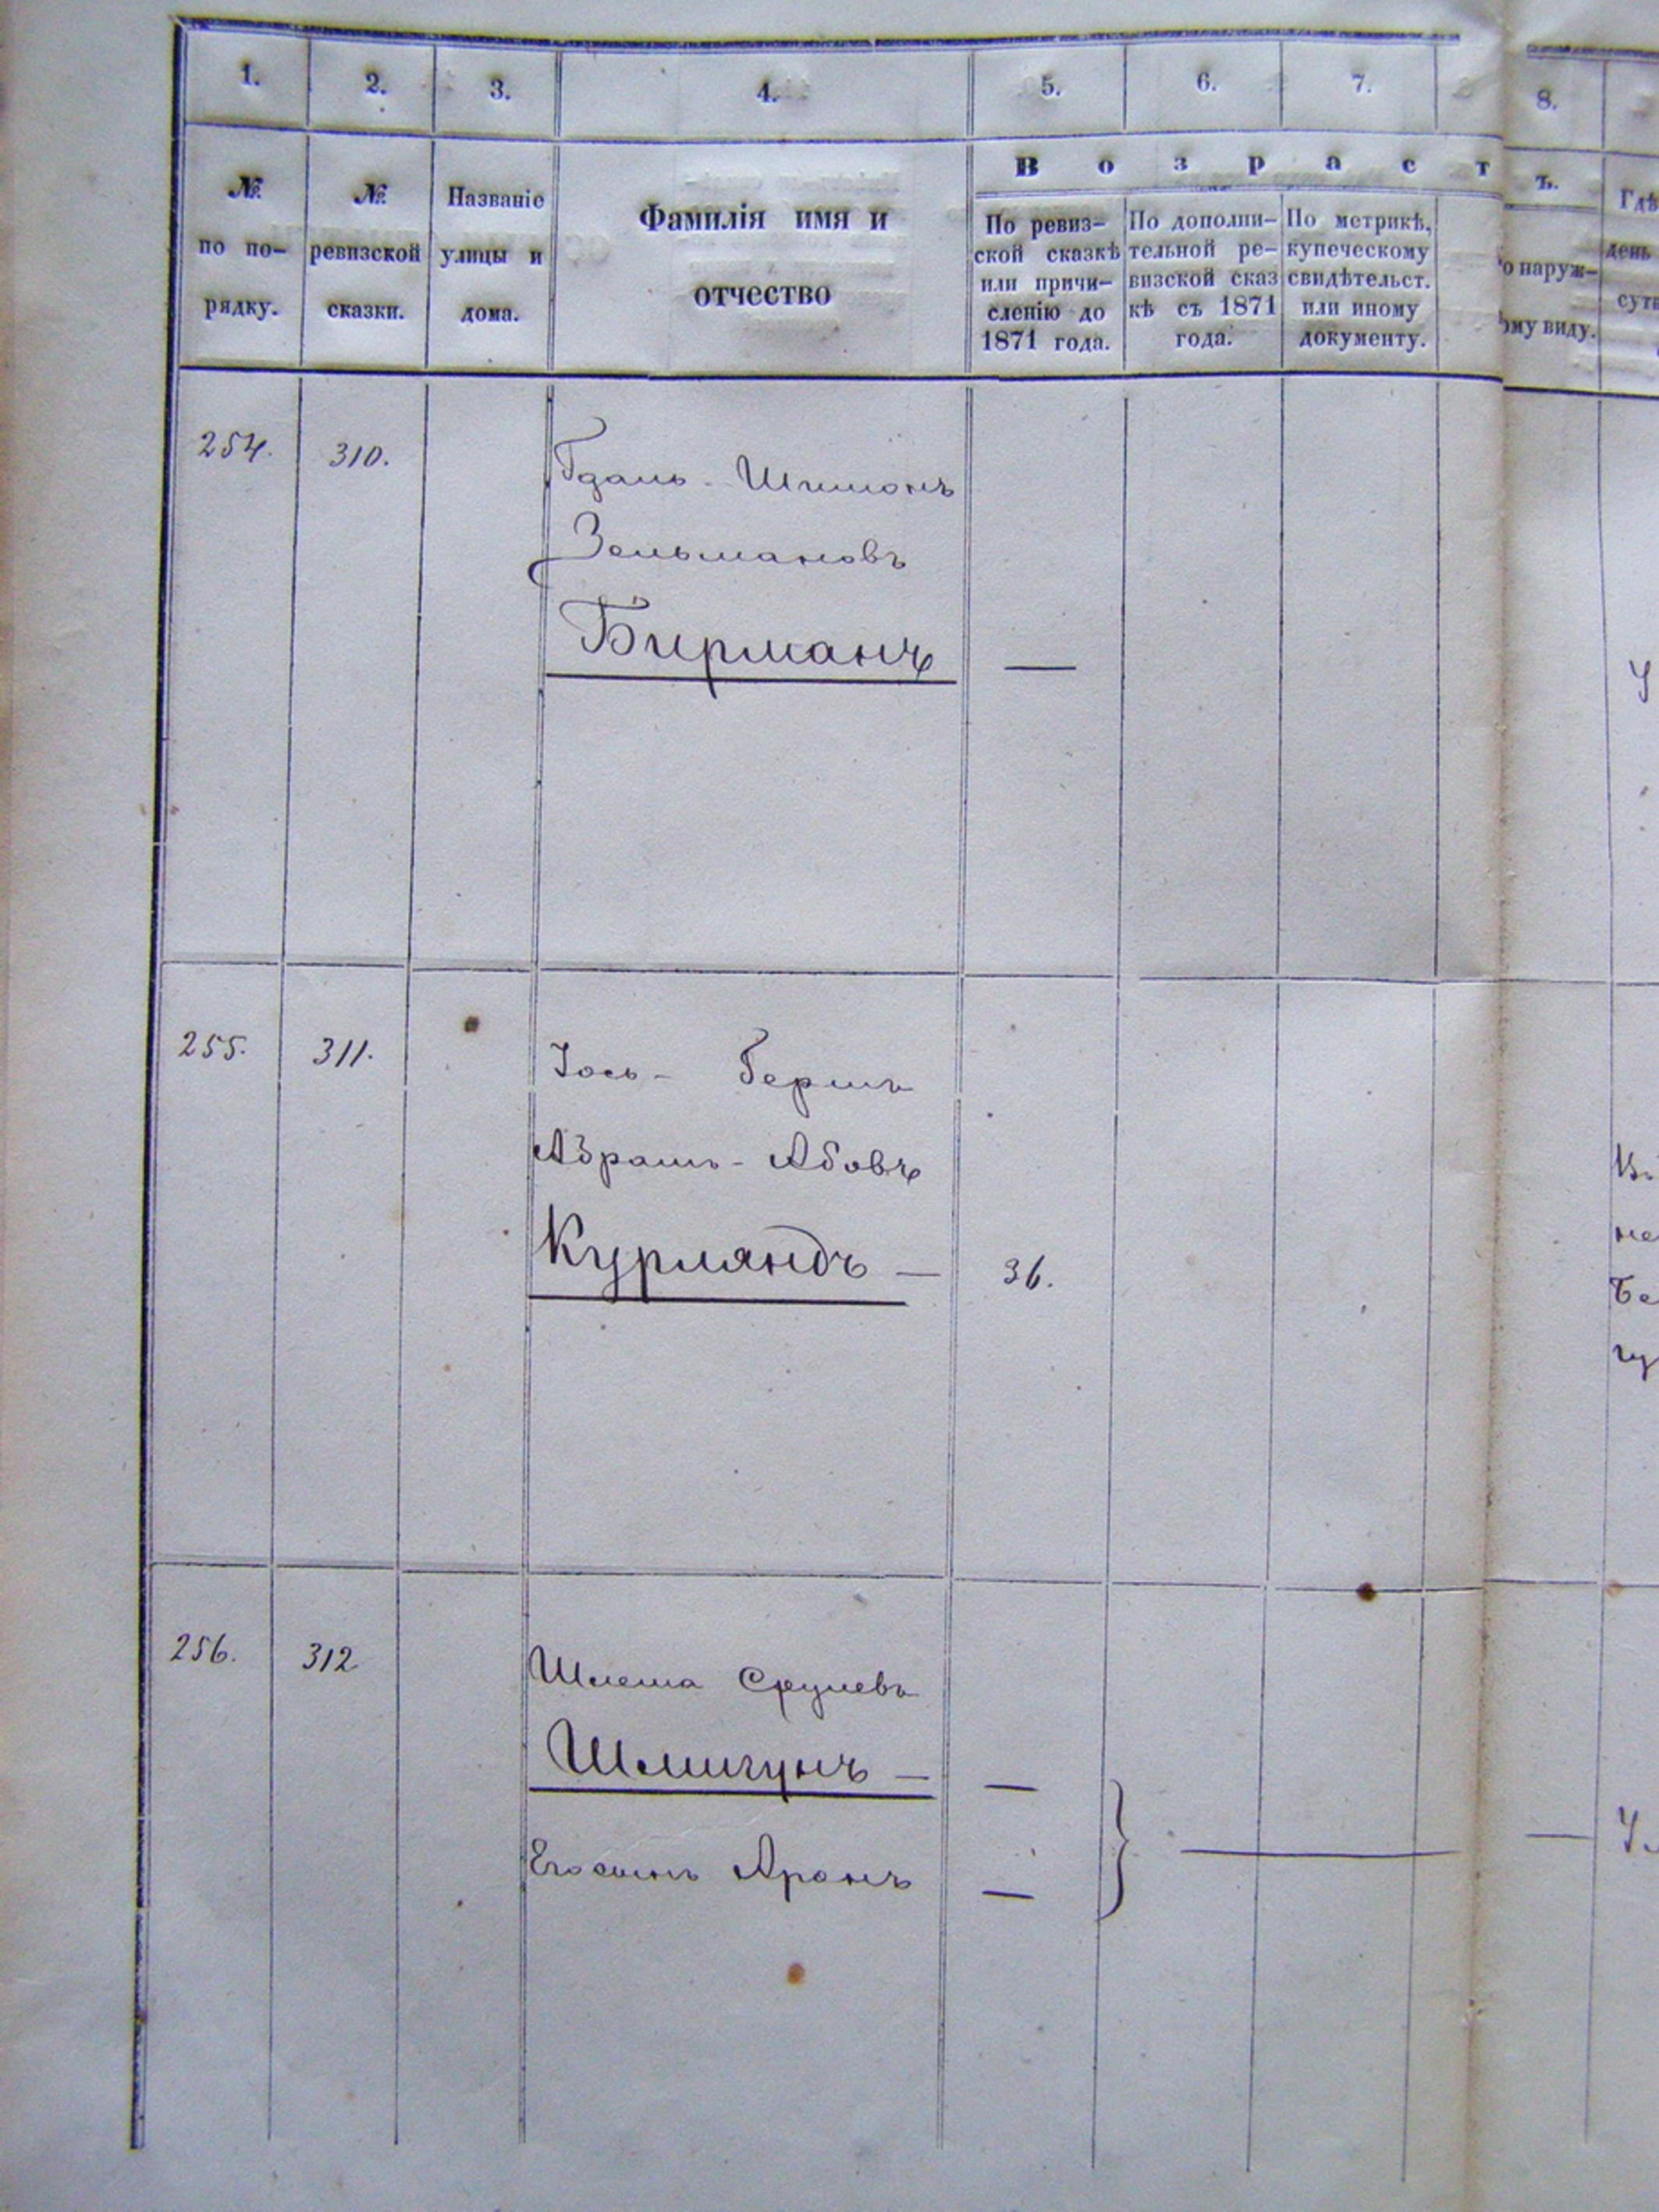 1. 2. 3. 4. 5. 6. 7. 8.
№ по по-рядку.
№ ревизской сказки.
Названіе улицы и дома.
Фамилія имя и отчество
Возраст
ъ.
По ревиз-
ской сказкѣ
или причи-
сленію до
1871 года.
По дополни-
тельной ре-
визской сказ
кѣ съ 1871
года.
По метрикѣ,
купеческому
свидѣтельст.
или иному
документу.
о наруж-
ому виду.
Гдѣ
день
254. 310.
Гдаль-Шимонъ
Зельмановъ
Бирманъ —
255. 311.
Іось-Гершъ
Абрамъ-Абовъ
Курляндъ — 36.
256. 312
Шлема Срулевъ
Шмигунъ — —
Его сынъ Аронъ —